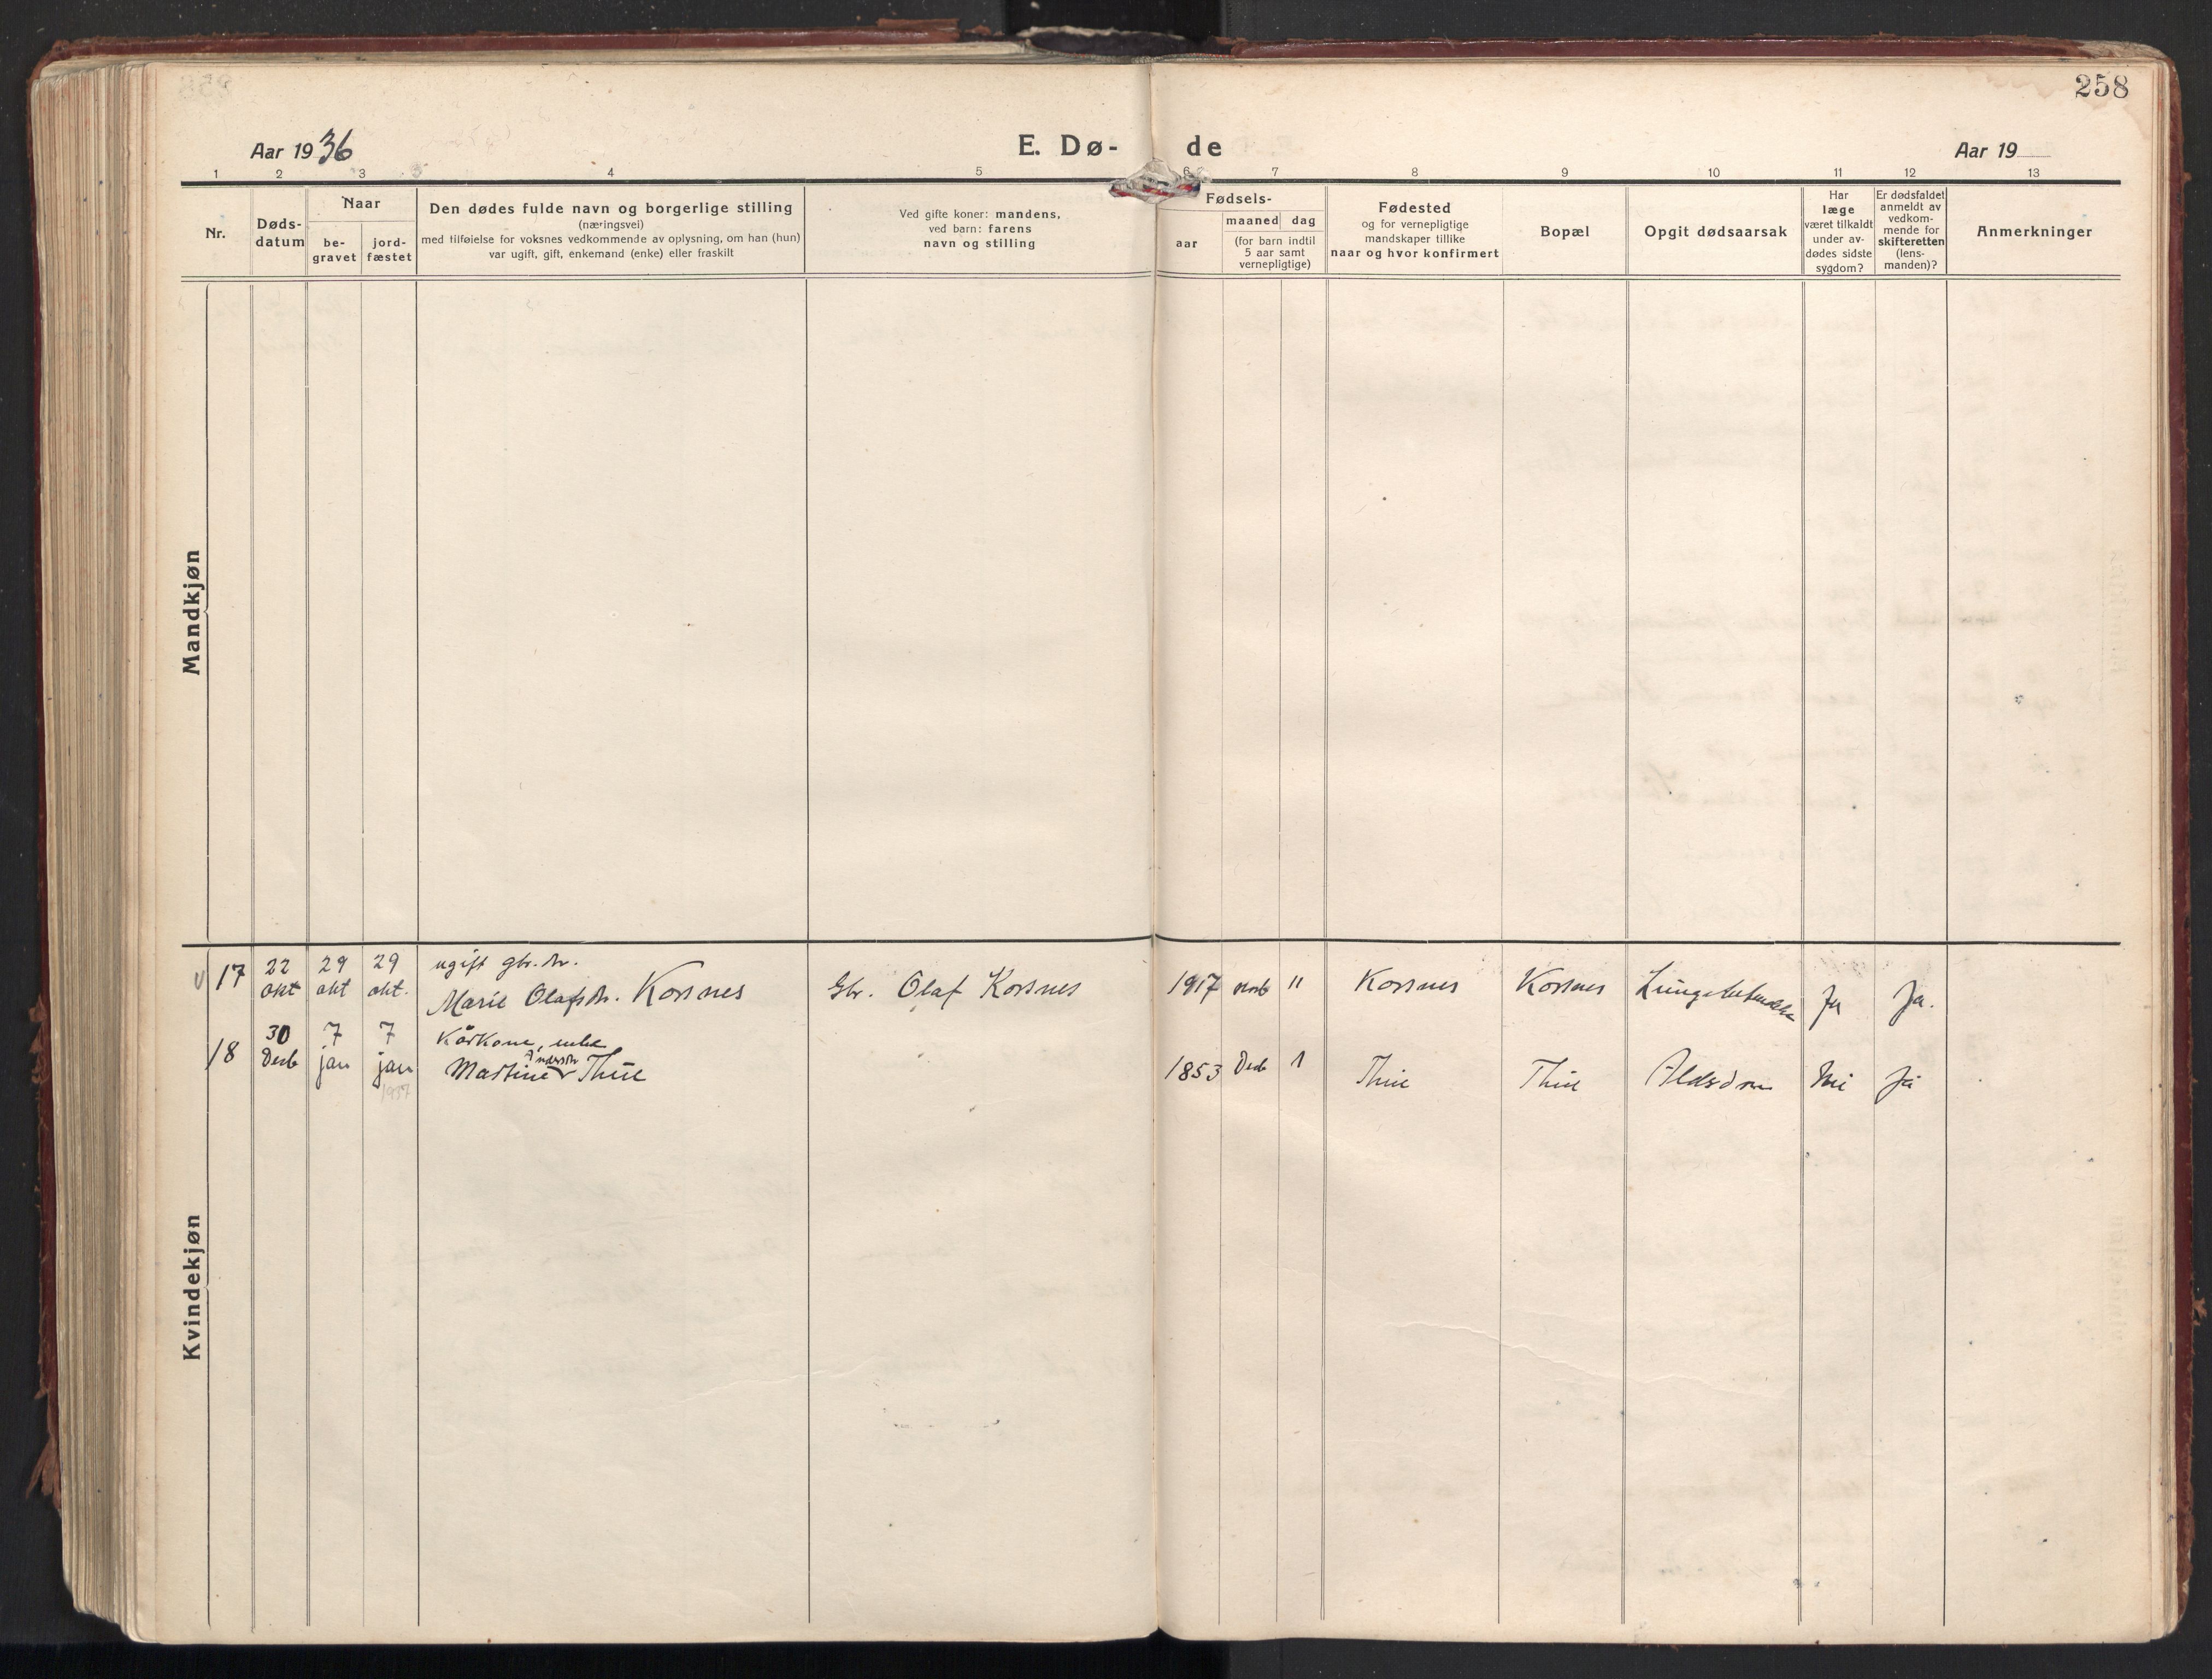 258
Aar 1936
E. Dø-
de
Aar 19
1 2 3 4 5 6 7 8 9 10 11 12 13
Nr.
Døds-
datum
Naar
be-
gravet
jord-
fæstet
Den dødes fulde navn og borgerlige stilling
(næringsvei)
med tilføielse for voksnes vedkommende av oplysning, om han (hun)
var ugift, gift, enkemand (enke) eller fraskilt
Ved gifte koner: mandens,
ved barn: farens
navn og stilling
Fødsels-
aar
maaned dag
(for barn indtil
5 aar samt
vernepligtige)
Fødested
og for vernepligtige
mandskaper tillike
naar og hvor konfirmert
Bopæl
Opgit dødsaarsak
Har
læge
været tilkaldt
under av-
dødes sidste
sygdom?
Er dødsfaldet
anmeldt av
vedkom-
mende for
skifteretten
(lens-
manden)?
Anmerkninger
Mandkjøn
Kvindekjøn
22 29 29 ugift gbr.dtr.
17 okt okt okt. Marie Olafsdtr. Korsnes Gbr. Olaf Korsnes 1917 11 Korsnes Korsnes Ja Ja.
30 7 7 Kårkone, enke
Andersdtr
18 Desb jan jan Martine Thue 1853 Desb 1 Thue Thue Aldsdom Nei Ja
1937